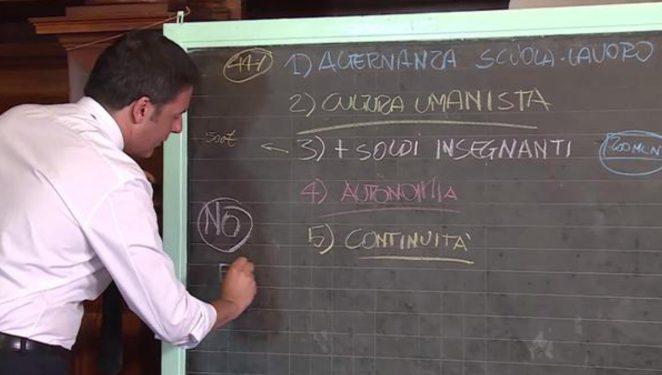 1) ALTERNANZA SCUOLA-LAVORO
2) CULTURA UMANISTA
500€ ← 3) + SOLDI INSEGNANTI 200 MLN
4) AUTONOMIA
NO
5) CONTINUITÀ